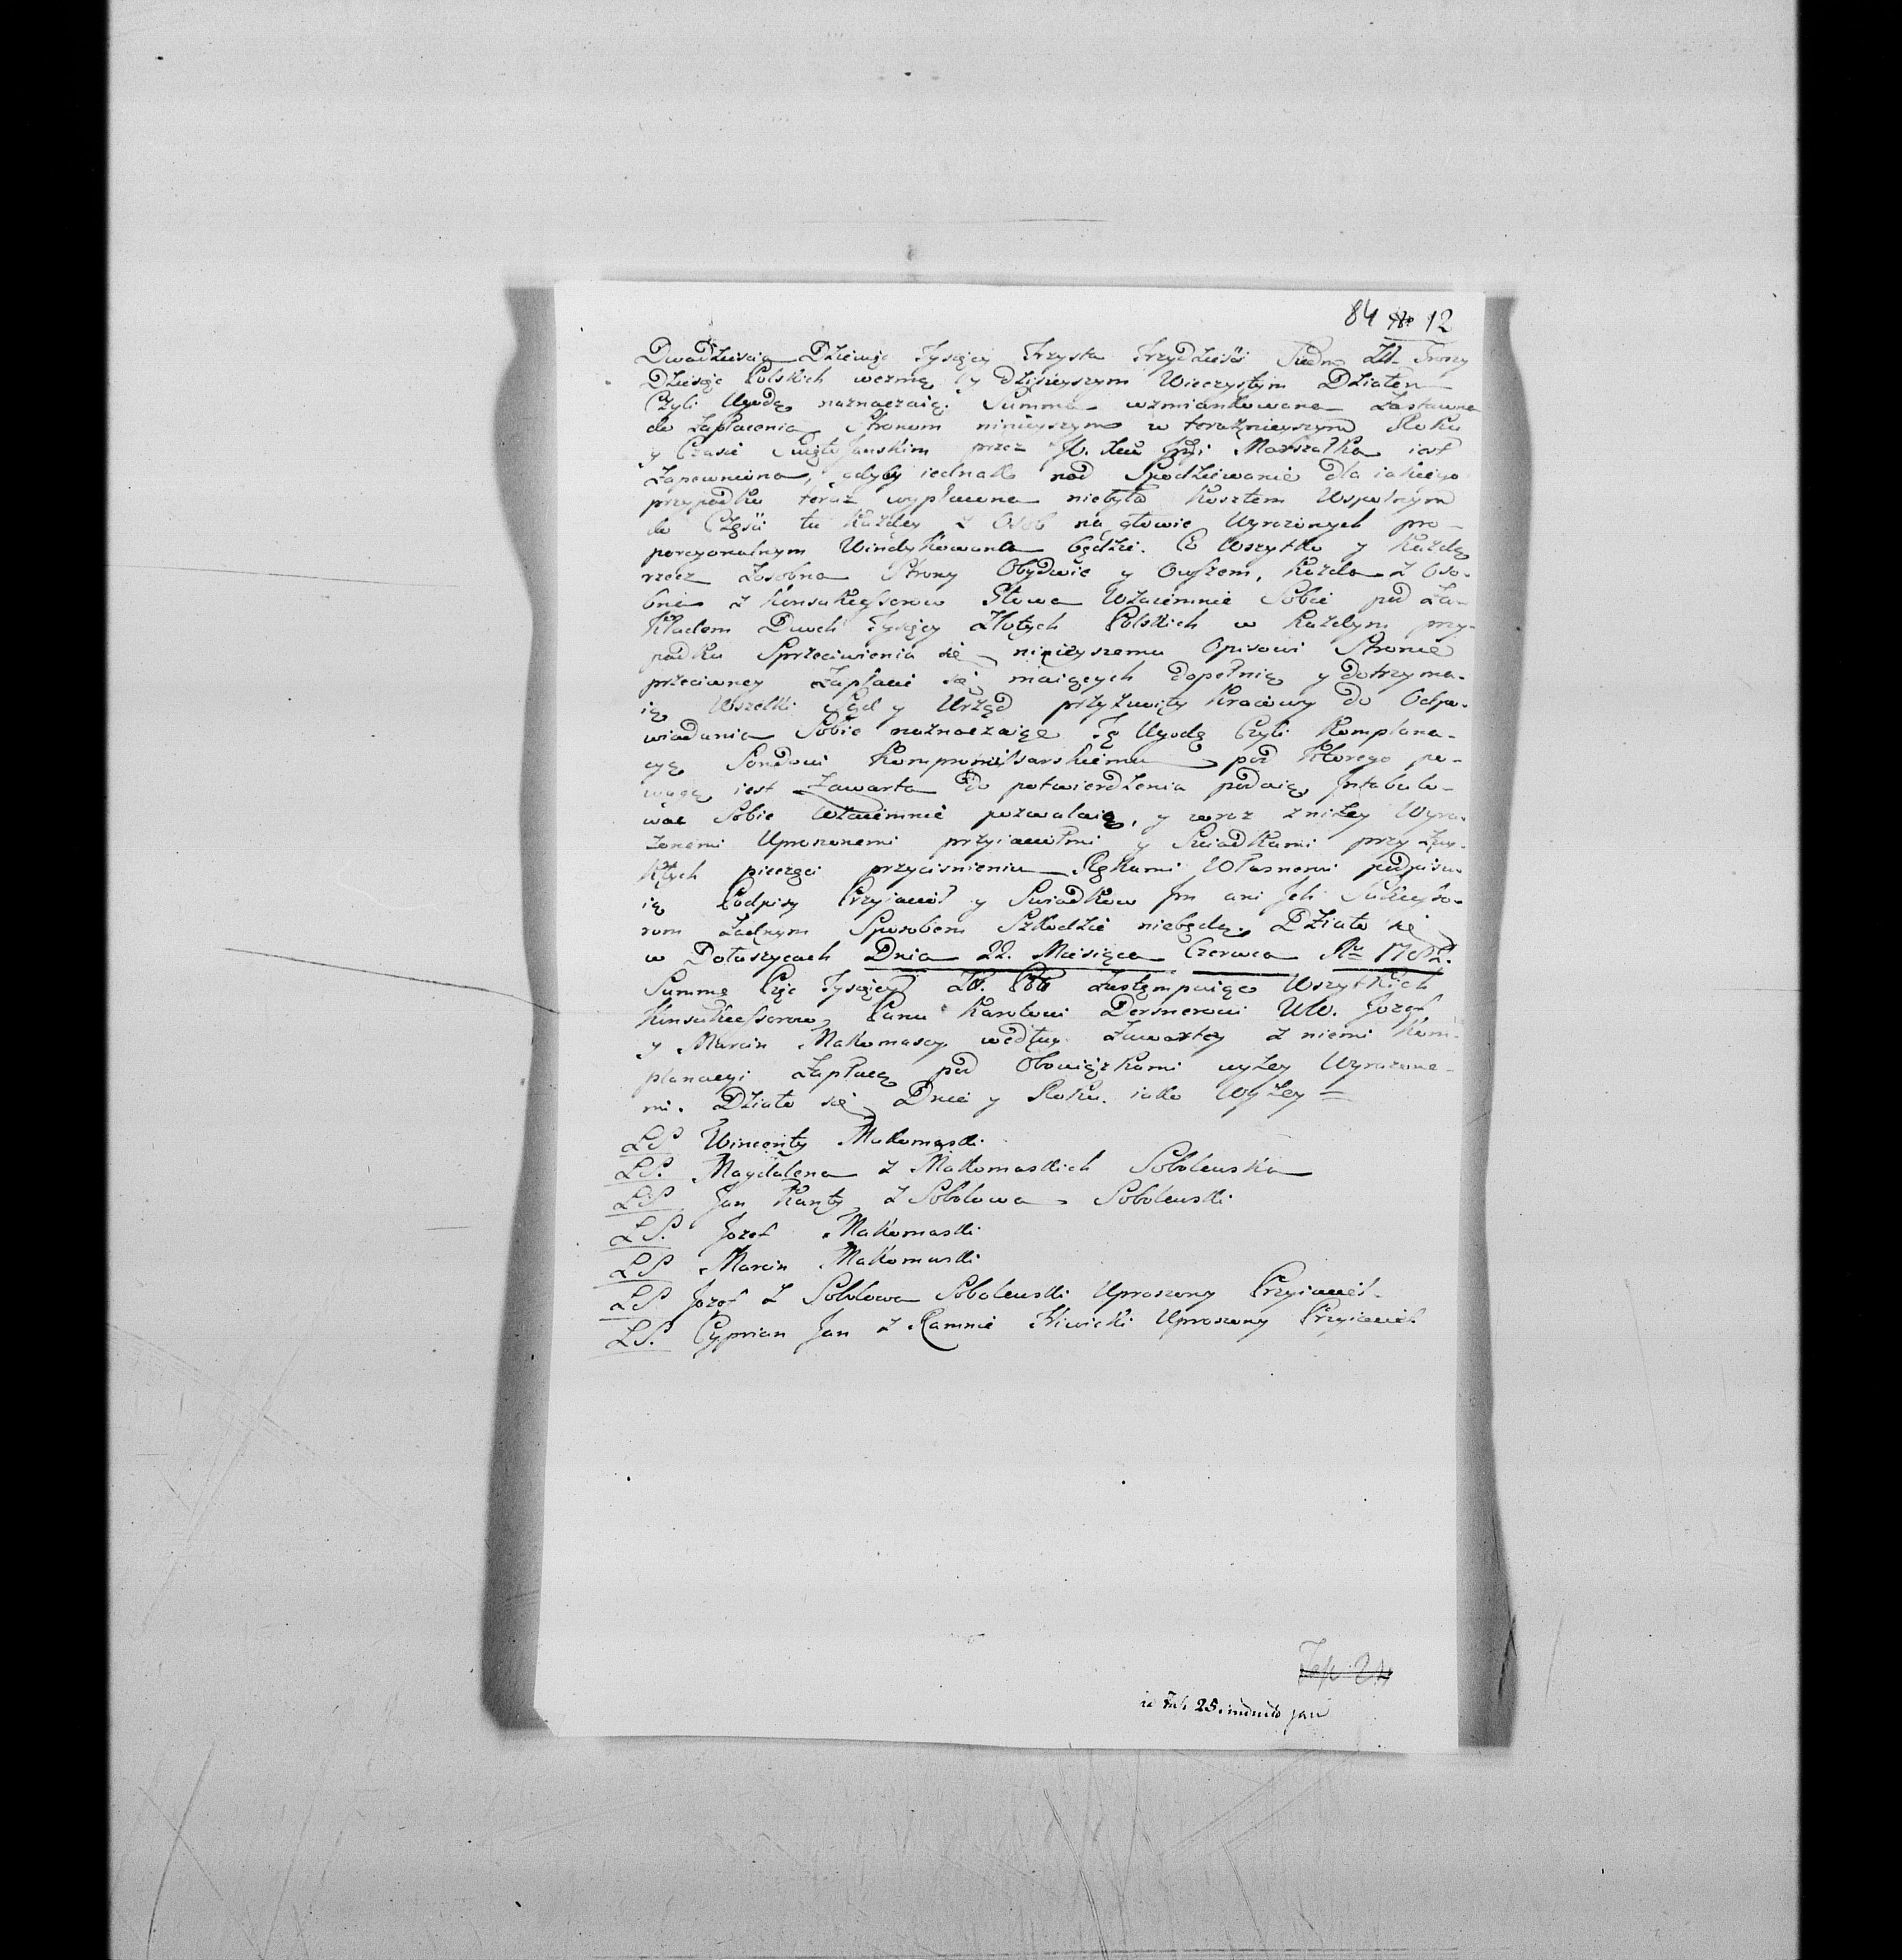 84 12
Dwadziescia Dziewięc Tysięcy Trzysta Trzydziesci Jedno Zlł. Groszy
Dziesięc Polskich wezmą y dzisieyszym Wieczystym Działem
Czyli Ugodą naznaczaią. Summa wzmiankowana Zastawna
do zapłacenia Stronom ninieyszym w teraznieyszym Roku
y Czasie Swięto Janskim przez Marszałka iest
Zapewniona, gdyby iednak nad Spodziewanie dla iakiego
przypadku teraz wypłacona niebyła Kosztem Wspolnym
do Częsci tu Każdey z Osob na głowie Wyrażonych pro-
porcyonalnym Windykowana będzie. Co Wszytko y Każdą
rzecz Zosobna Strony Obydwie y Owszem, Każda z Oso-
bna z Konsukcessorow Słowa Wzaiemnie Sobie pod Za-
kładem Dwoch Tysięcy Złotych Polskich w Każdym przy-
padku Sprzeciwienia się ninieyszemu Opisowi Stronie
przeciwney Zapłacić się maiących dopełnią y dotrzyma-
ią Wszelki Sąd y Urząd przyzwoity Kraiowy do Odpo-
wiadania Sobie naznaczaiąc Tę Ugodę Czyli Komplana-
cyą Sondowi Kompromissarskiemu pod Ktorego po-
wagą iest Zawarta do potwierdzenia podaią, Intabulo-
wac Sobie Wzaiemnie pozwalaią, y wraz z niżey Wyra-
żonemi Uproszonemi przyiaciołmi y Swiadkami przy Zwy-
kłych pieczęci przycisnieniu Rękami Własnemi podpisu-
ią Podpisy Przyiacioł y Swiadkow Im ani Ich Sukcesso-
rom Żadnym Sposobem Szkodzić niebędą. Działo się
w Dołuszycach Dnia 22. Miesiąca Czerwca Ru 1782.
Summę Pięc Tysięcy Zlł. Pll Zastęmpuiąc Wszytkich
Konsukcessorow, Panu Karolowi Dersnerowi UW. Jozef
y Marcin Makomascy według Zawartey z niemi Kom-
planacyi Zapłacą pod Obowiązkami wyżey Wyrażone-
mi. Działo się Dnia y Roku iako Wyżey
LS Wincenty Makomaski
LS. Magdalena z Makomaskich Sobolewska
LS Jan Kanty z Sobolowa Sobolewski
LS. Jozef Makomaski
LS Marcin Makomaski
LS Jozef z Sobolowa Sobolewski Uproszony Przyiaciel.
LS. Cyprian Jan z Ramnie Uproszony Przyiaciel
25